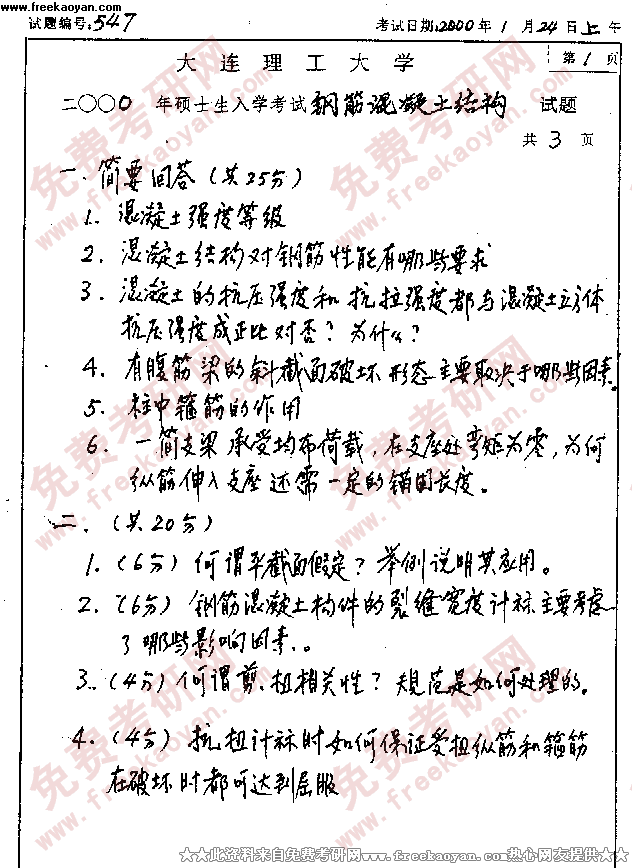 www.freekaoyan.com
试题编号:547
考试日期:2000年1月24日上午
大连理工大学
第1页
二〇〇〇年硕士生入学考试钢筋混凝土结构试题
共3页
一、简要回答(共25分)
1. 混凝土强度等级
2. 混凝土结构对钢筋性能有哪些要求
3. 混凝土的抗压强度和抗拉强度都与混凝土立方体
抗压强度成正比对否?为什么?
4. 有腹筋梁的斜截面破坏形态主要取决于哪些因素。
5. 柱中箍筋的作用
6. 一简支梁承受均布荷载,在支座处弯矩为零,为何
纵筋伸入支座还需一定的锚固长度。
二、(共20分)
1.(6分)何谓平截面假定?举例说明其应用。
2.(6分)钢筋混凝土构件的裂缝宽度计标主要考虑
了哪些影响因素..
3.(4分)何谓剪、扭相关性?规范是如何处理的。
4.(4分)抗扭计标时如何保证受扭纵筋和箍筋
在破坏时都可达到屈服
免费考研网
www.freekaoyan.com
★★此资料来自免费考研网 www.freekaoyan.com 热心网友提供★★